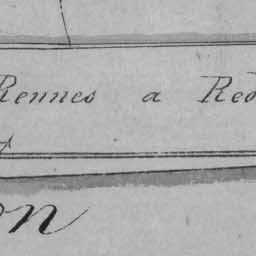 Rennes a Red
on